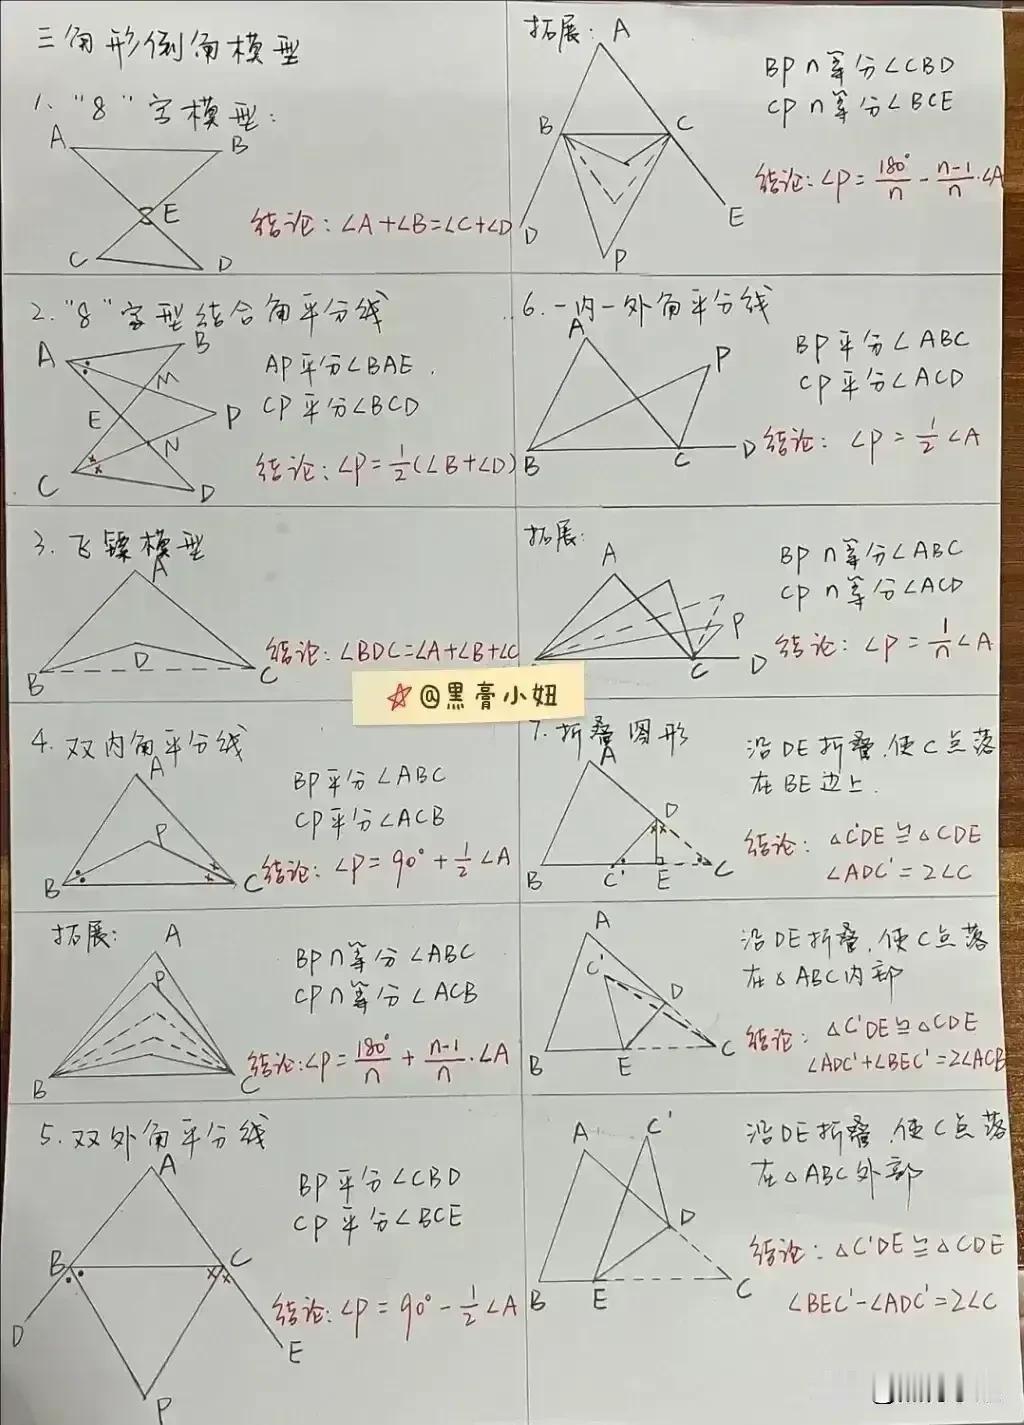 三角形倒角模型
1. "8"字模型:
A
B
E
C
D
结论: ∠A+∠B=∠C+∠D
2. "8"字型结合角平分线
A
B
M
E
P
N
C
D
AP平分∠BAE.
CP平分∠BCD
结论: ∠P=1/2(∠B+∠D)
3. 飞镖模型
A
D
B
C
结论: ∠BDC=∠A+∠B+∠C
@黑膏小妞
4. 双内角平分线
A
P
B
C
BP平分∠ABC
CP平分∠ACB
结论: ∠P=90°+1/2∠A
拓展:
A
P
B
C
BP n等分∠ABC
CP n等分∠ACB
结论:∠P=180°/n+n-1/n·∠A
5. 双外角平分线
A
B
C
D
E
P
BP平分∠CBD
CP平分∠BCE
结论: ∠P=90°-1/2∠A
拓展:
A
B
C
D
E
P
BP n等分∠CBD
CP n等分∠BCE
结论:∠P=180°/n-n-1/n·∠A
6. 一内一外角平分线
A
P
B
C
D
BP平分∠ABC
CP平分∠ACD
结论: ∠P=1/2∠A
拓展:
A
P
C
D
BP n等分∠ABC
CP n等分∠ACD
结论: ∠P=1/n∠A
7. 折叠图形
A
D
B
C'
E
C
沿DE折叠,使C点落
在BE边上.
结论: △C'DE≌△CDE
∠ADC'=2∠C
A
C'
D
B
E
C
沿DE折叠,使C点落
在△ABC内部
结论: △C'DE≌△CDE
∠ADC'+∠BEC'=2∠ACB
A
C'
D
B
E
C
沿DE折叠,使C点落
在△ABC外部
结论: △C'DE≌△CDE
∠BEC'-∠ADC'=2∠C